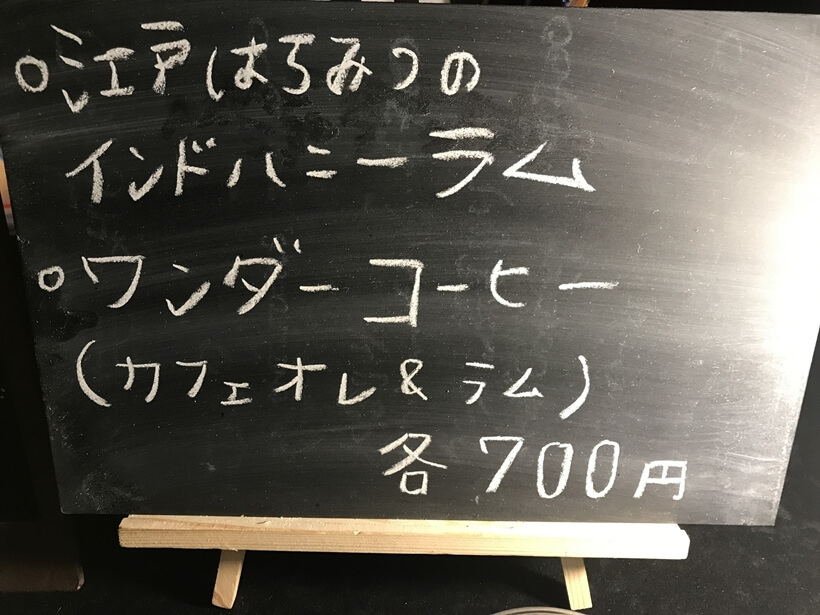 ○江戸はちみつの
インドハニーラム
○ワンダーコーヒー
(カフェオレ&ラム)
各700円